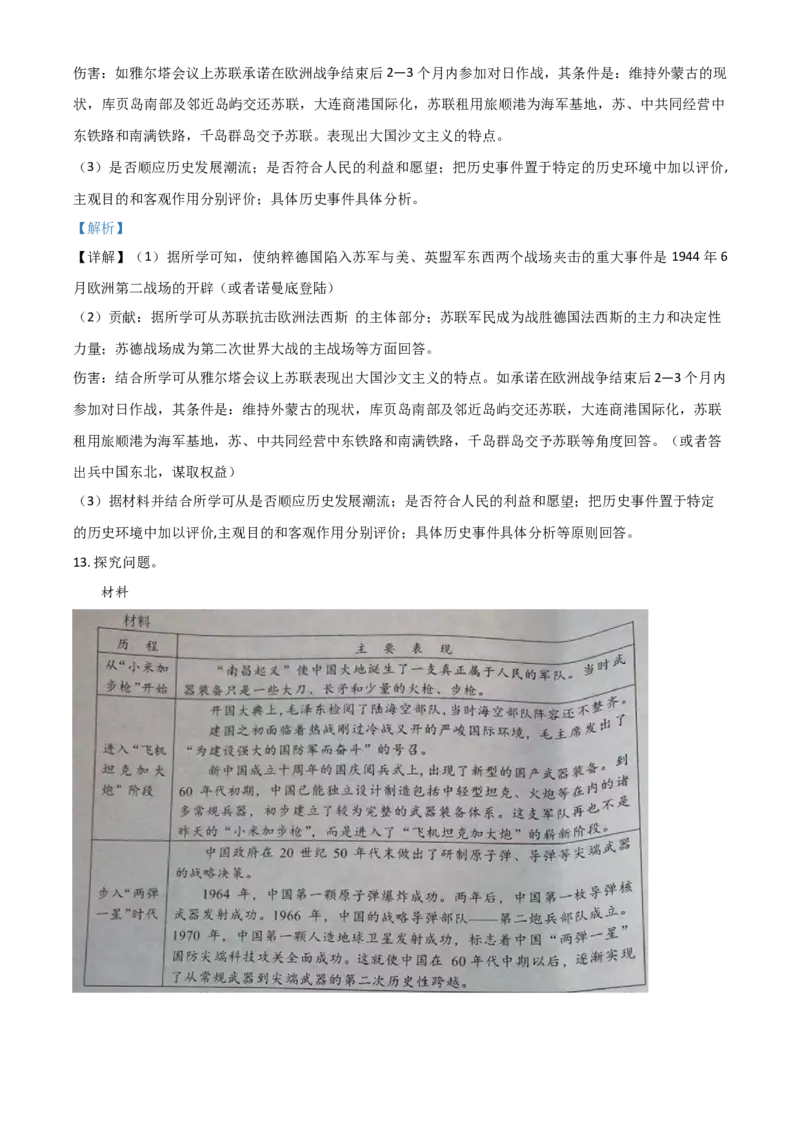 伤害：如雅尔塔会议上苏联承诺在欧洲战争结束后2—3个月内参加对日作战，其条件是：维持外蒙古的现
状，库页岛南部及邻近岛屿交还苏联，大连商港国际化，苏联租用旅顺港为海军基地，苏、中共同经营中
东铁路和南满铁路，千岛群岛交予苏联。表现出大国沙文主义的特点。
（3）是否顺应历史发展潮流；是否符合人民的利益和愿望；把历史事件置于特定的历史环境中加以评价，
主观目的和客观作用分别评价；具体历史事件具体分析。
【解析】
【详解】（1）据所学可知，使纳粹德国陷入苏军与美、英盟军东西两个战场夹击的重大事件是 1944 年 6
月欧洲第二战场的开辟（或者诺曼底登陆）
（2）贡献：据所学可从苏联抗击欧洲法西斯 的主体部分；苏联军民成为战胜德国法西斯的主力和决定性
力量；苏德战场成为第二次世界大战的主战场等方面回答。
伤害：结合所学可从雅尔塔会议上苏联表现出大国沙文主义的特点。如承诺在欧洲战争结束后2—3个月内
参加对日作战，其条件是：维持外蒙古的现状，库页岛南部及邻近岛屿交还苏联，大连商港国际化，苏联
租用旅顺港为海军基地，苏、中共同经营中东铁路和南满铁路，千岛群岛交予苏联等角度回答。（或者答
出兵中国东北，谋取权益）
（3）据材料并结合所学可从是否顺应历史发展潮流；是否符合人民的利益和愿望；把历史事件置于特定
的历史环境中加以评价,主观目的和客观作用分别评价；具体历史事件具体分析等原则回答。
13. 探究问题。
材料
材料
历 程 主 要 表 现
从“小米加
步枪”开始
“南昌起义”使中国大地诞生了一支真正属于人民的军队。当时武
器装备只是一些大刀、长矛和少量的火枪、步枪。
进入“飞机
坦克加大
炮”阶段
开国大典上,毛泽东检阅了陆海空部队,当时海空部队阵容还不整齐。
建国之初面临着热战刚过冷战又开的严峻国际环境，毛主席发出了
“为建设强大的国防军而奋斗”的号召。
新中国成立十周年的国庆阅兵式上,出现了新型的国产武器装备。到
60 年代初期，中国已能独立设计制造包括中轻型坦克、火炮等在内的诸
多常规兵器，初步建立了较为完整的武器装备体系。这支军队再也不是
昨天的“小米加步枪”，而是进入了“飞机坦克加大炮”的崭新阶段。
步入“两弹
一星”时代
中国政府在 20 世纪 50 年代末做出了研制原子弹、导弹等尖端武器
的战略决策。
1964 年，中国第一颗原子弹爆炸成功。两年后，中国第一枚导弹核
武器发射成功。1966 年，中国的战略导弹部队——第二炮兵部队成立。
1970 年，中国第一颗人造地球卫星发射成功，标志着中国“两弹一星”
国防尖端科技攻关全面成功。这就使中国在 60 年代中期以后，逐渐实现
了从常规武器到尖端武器的第二次历史性跨越。